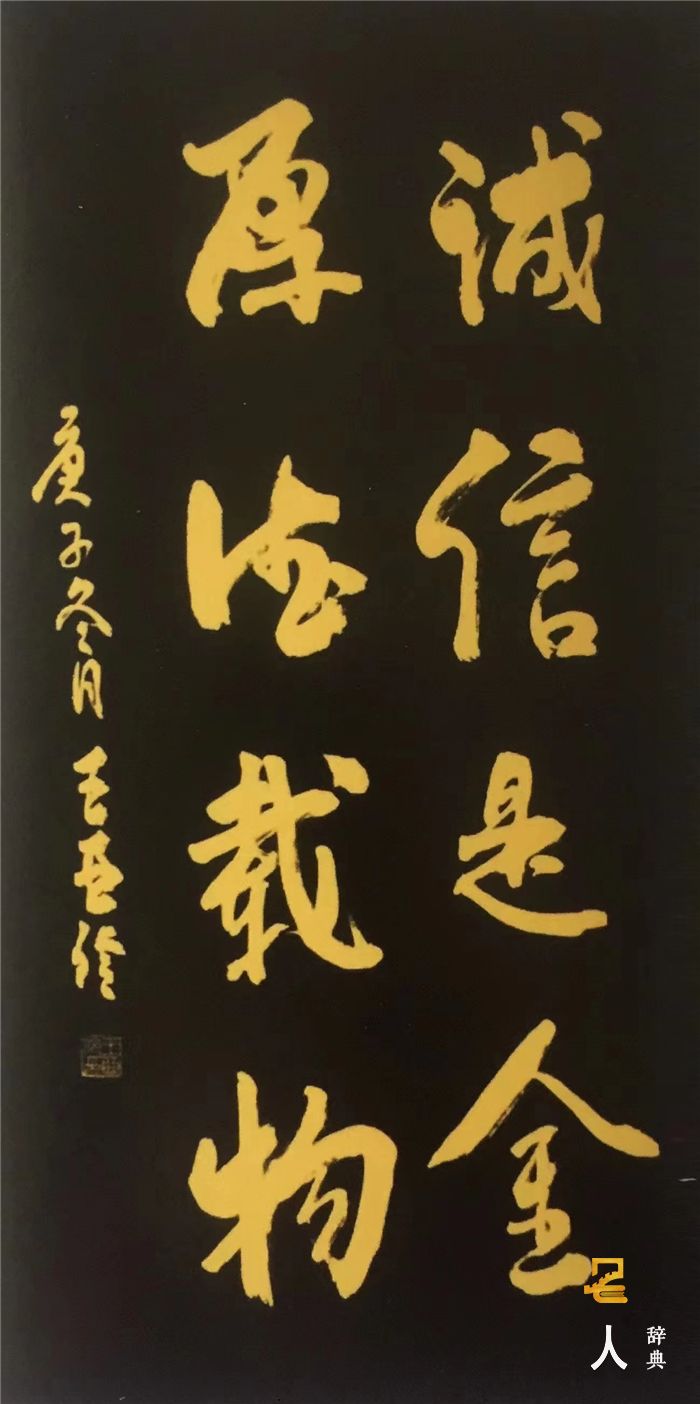 诚信是金
厚德载物
庚子冬月
名人
辞典